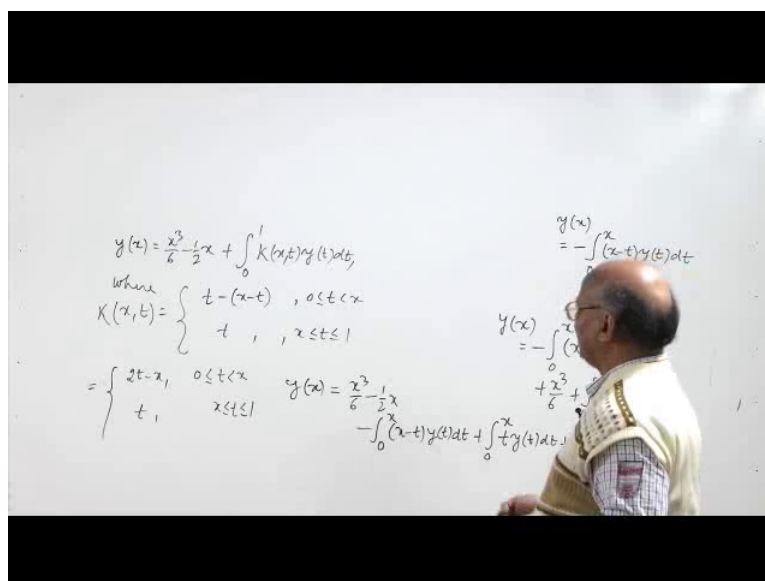 y(x) = x³/6 - 1/2 x + ∫₀¹ K(x,t) y(t) dt,
where
K(x,t) = { t-(x-t) , 0≤t<x
t , , x≤t≤1
= { 2t-x, 0≤t<x
t, x≤t≤1
y(x) = x³/6 - 1/2 x
- ∫₀ˣ (x-t) y(t) dt + ∫₀ˣ t y(t) dt
y(x)
= - ∫₀ˣ (x-t) y(t) dt
y(x)
= - ∫₀ˣ (x
+ x³/6 + ∫